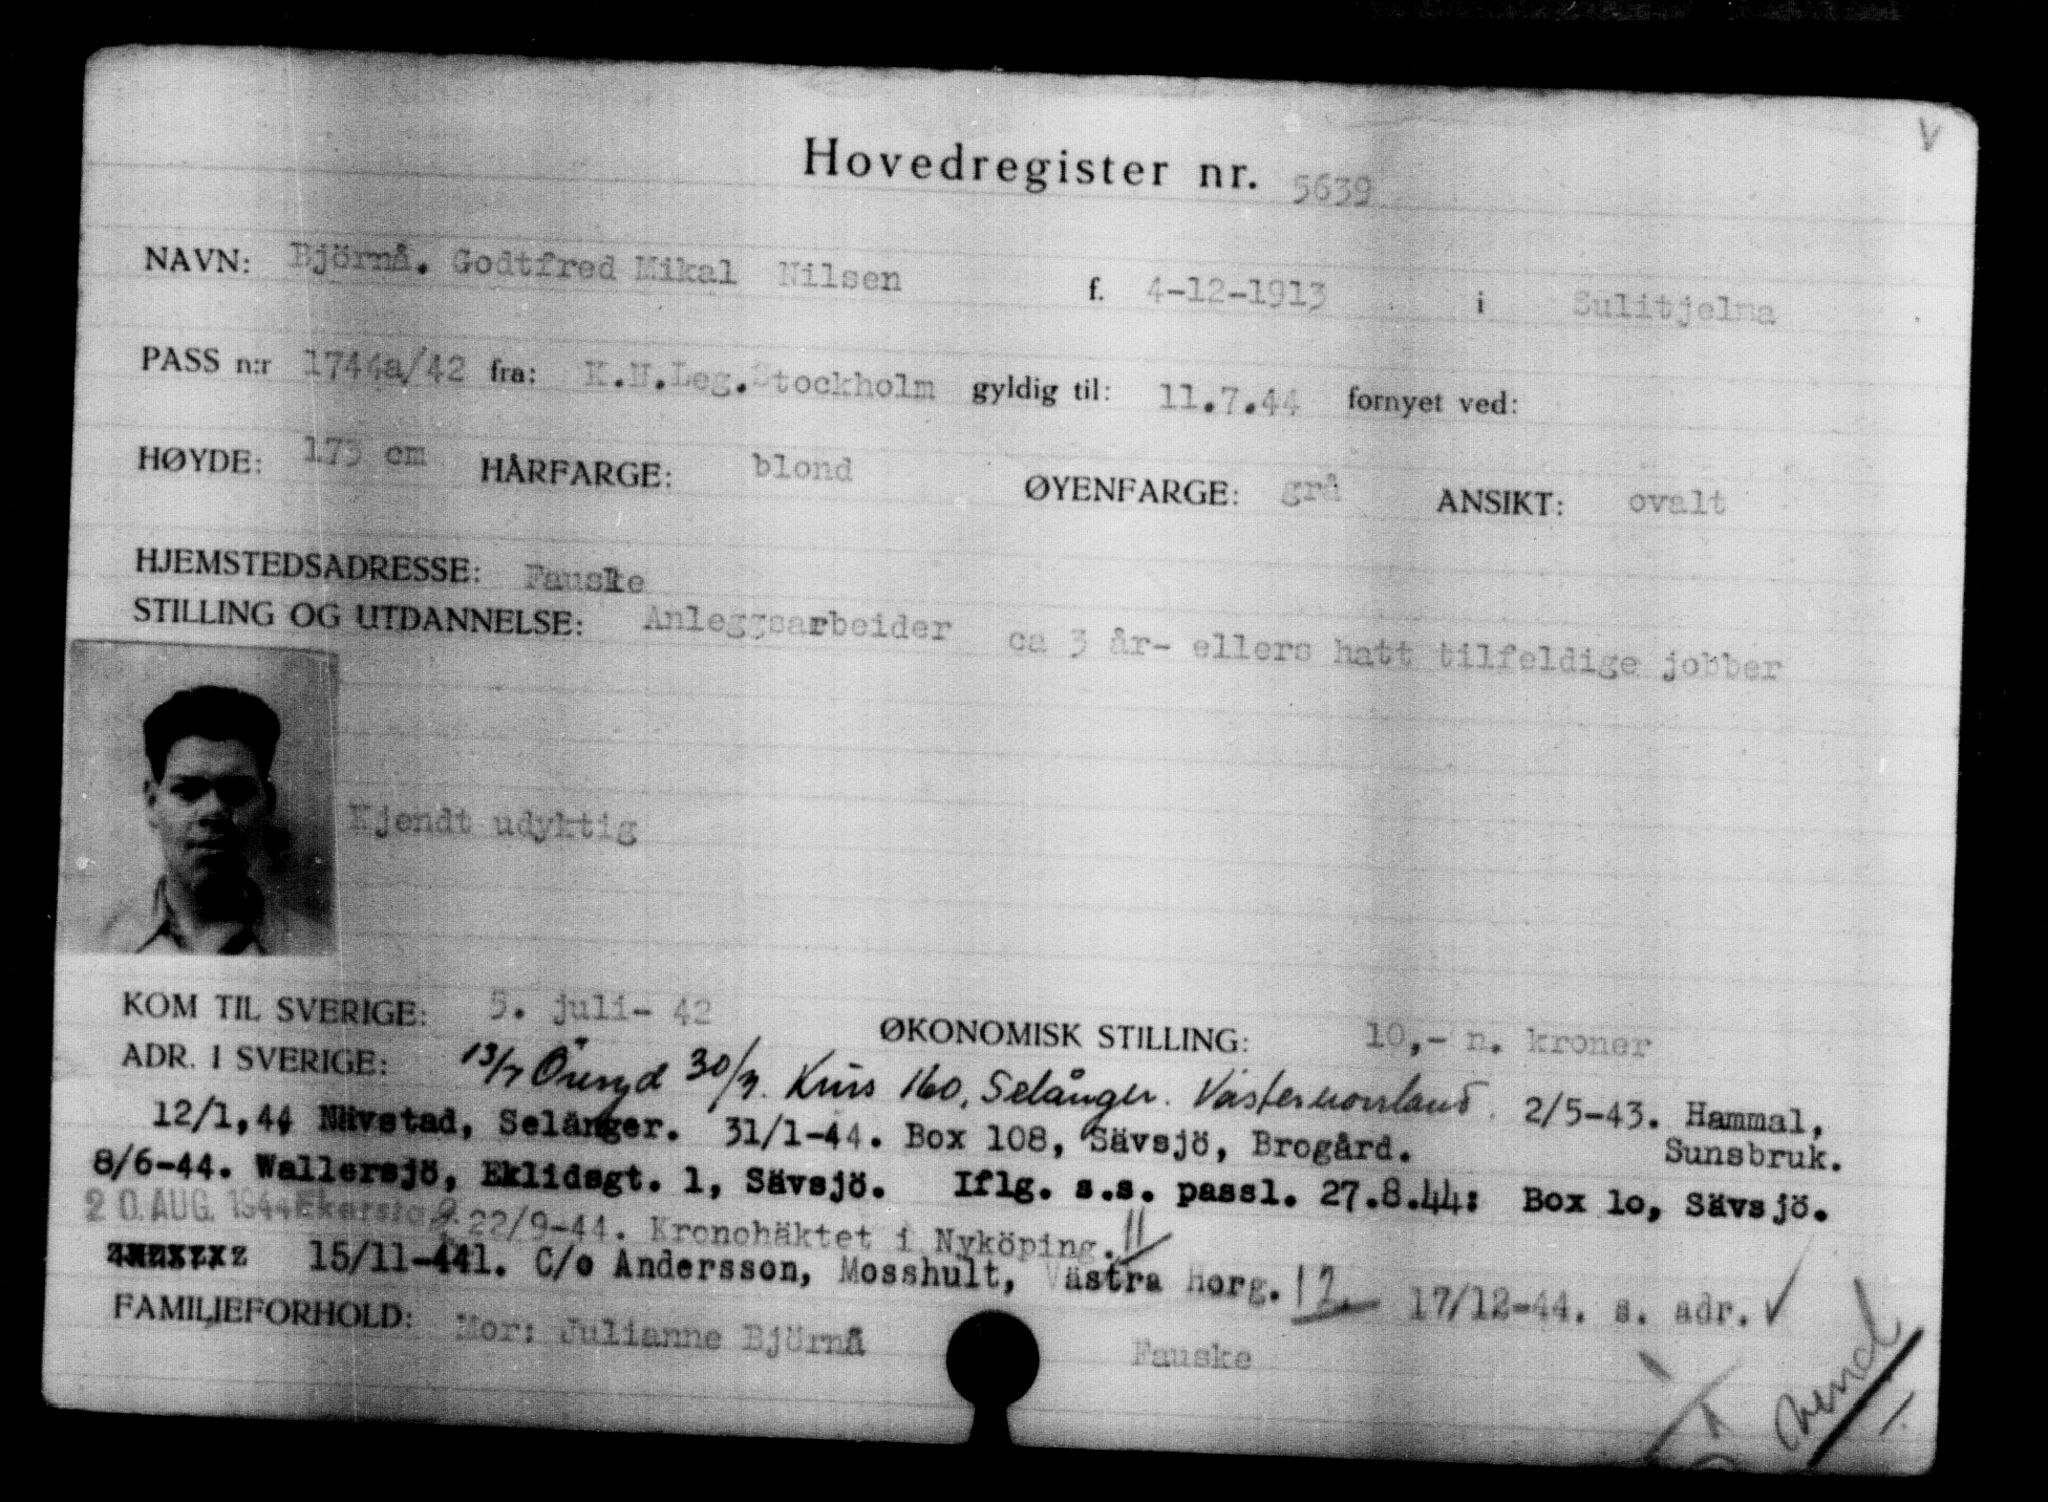 V
Hovedregister nr. 5639
NAVN: Björnå. Godtfred Mikal Nilsen f. 4-12-1913 i Sulitjelma
PASS n:r 1744a/42 fra: K.N.Leg.Stockholm gyldig til: 11.7.44 fornyet ved:
HØYDE: 175 cm HÅRFARGE: blond ØYENFARGE: grå ANSIKT: ovalt
HJEMSTEDSADRESSE: Fauske
STILLING OG UTDANNELSE: Anleggsarbeider ca 3 år- ellers hatt tilfeldige jobber
Kjendt udyktig
KOM TIL SVERIGE: 5. juli- 42 ØKONOMISK STILLING: 10,- n. kroner
ADR. I SVERIGE: 13/7 Öreryd 30/7. Krus 160, Selånger. Västernorrland. 2/5-43. Hammal,
Sunsbruk.
12/1,44 Nävstad, Selånger. 31/1-44. Box 108, Sävsjö, Brogård.
8/6-44. Wallersjö, Eklidsgt. 1, Sävsjö. Iflg. s.s. passl. 27.8.44: Box 1o, Sävsjö.
20. AUG. 1944 22/9-44. Kronohäktet i Nyköping. 11
15/11-441. C/o Andersson, Mosshult, Västra Horg. 12 17/12-44. s. adr. ✓
FAMILIEFORHOLD: Mor: Julianne Björnå Fauske